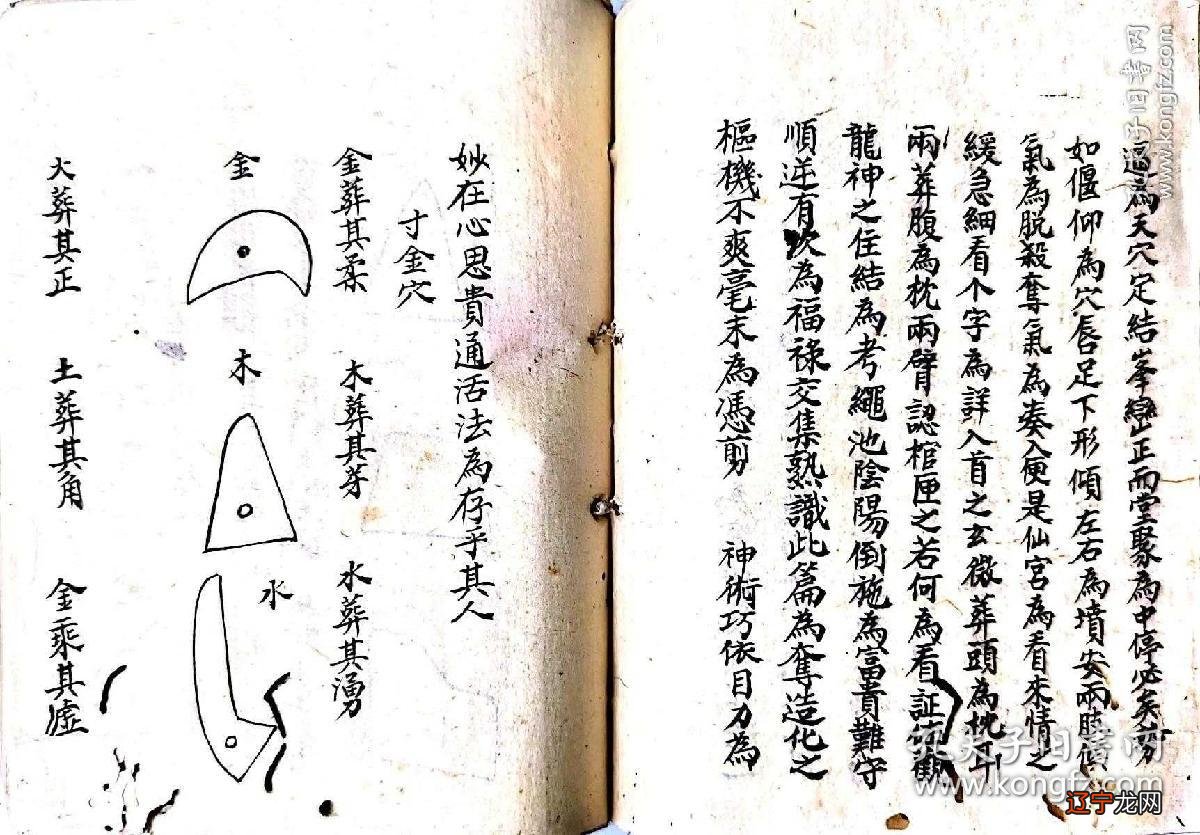 逼為天穴定結峯巒正而堂聚為中停必矣剪
如偃仰為穴唇足下形傾左右為墳安兩
氣為脫殺奪氣為奏入便是仙宮為看來情之
緩急細看个字為詳入首之玄微葬頭為枕
兩葬腹為枕兩臂認棺匣之若何為看証
龍神之住結為考繩池陰陽倒施為富貴難守
順逆有次為福祿交集熟識此篇為奪造化之
樞機不爽毫末為馮剪 神術巧依目力為
妙在心思貴通活法為存乎其人
寸金穴
金葬其柔 木葬其芽 水葬其湧
金
木
水
火葬其正 土葬其角 金乘其虛
孔夫子旧书网
www.kongfz.com
夫子旧书网
www.kongfz.com
辽宁龙网